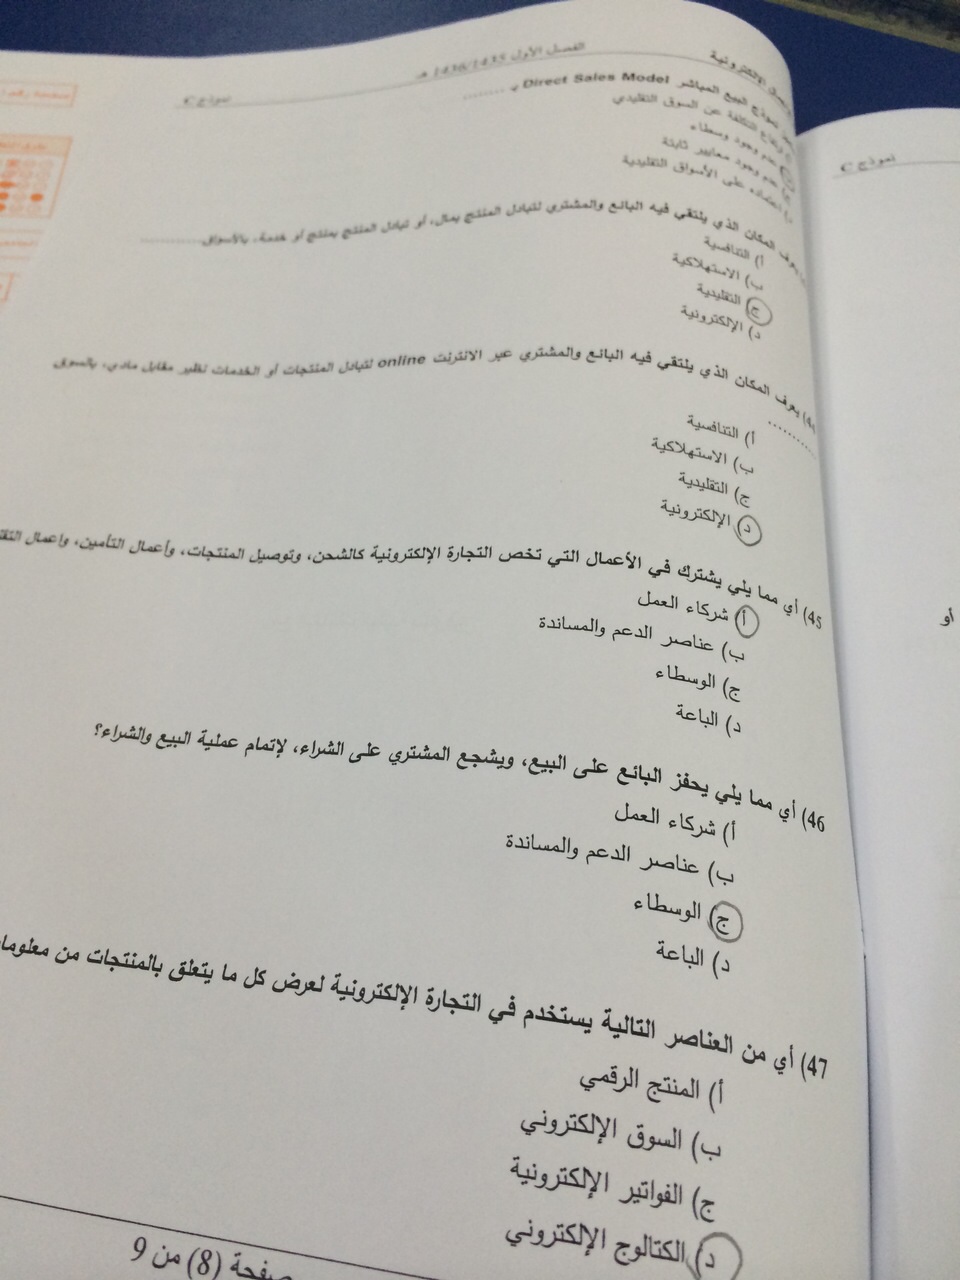 الفصل الأول 1436/1435 هـ
نموذج C
نموذج البيع المباشر Direct Sales Model بـ ........
ارتفاع التكلفة عن السوق التقليدي
عدم وجود وسطاء
عدم وجود معايير ثابتة
د) اعتماده على الأسواق التقليدية
يعرف المكان الذي يلتقي فيه البائع والمشتري لتبادل المنتج بمال، أو تبادل المنتج بمنتج أو خدمة، بالأسواق............
أ) التنافسية
ب) الاستهلاكية
ج) التقليدية
د) الإلكترونية
يعرف المكان الذي يلتقي فيه البائع والمشتري عبر الانترنت online لتبادل المنتجات أو الخدمات نظير مقابل مادي، بالسوق
..........
أ) التنافسية
ب) الاستهلاكية
ج) التقليدية
د) الإلكترونية
45) أي مما يلي يشترك في الأعمال التي تخص التجارة الإلكترونية كالشحن، وتوصيل المنتجات، وأعمال التأمين، واعمال
أ) شركاء العمل
ب) عناصر الدعم والمساندة
ج) الوسطاء
د) الباعة
46) أي مما يلي يحفز البائع على البيع، ويشجع المشتري على الشراء، لإتمام عملية البيع والشراء؟
أ) شركاء العمل
ب) عناصر الدعم والمساندة
ج) الوسطاء
د) الباعة
47) أي من العناصر التالية يستخدم في التجارة الإلكترونية لعرض كل ما يتعلق بالمنتجات من
أ) المنتج الرقمي
ب) السوق الإلكتروني
ج) الفواتير الإلكترونية
د) الكتالوج الإلكتروني
صفحة (8) من 9
نموذج C
أو